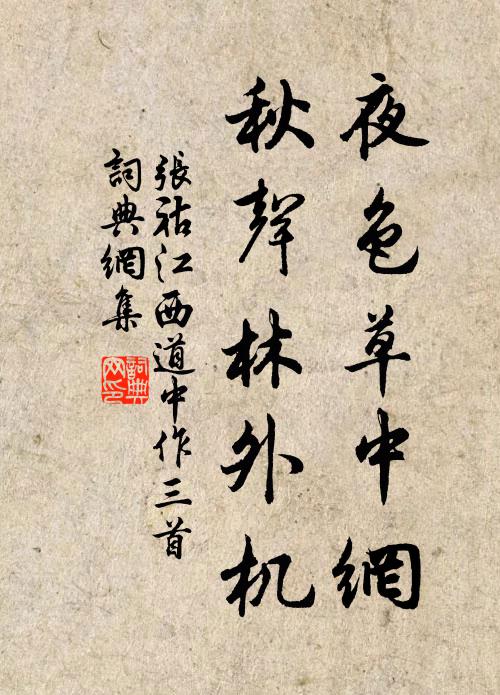 夜色草中網
秋聲林外机
張祜江西道中作三首
詞典網集
詞典
网印